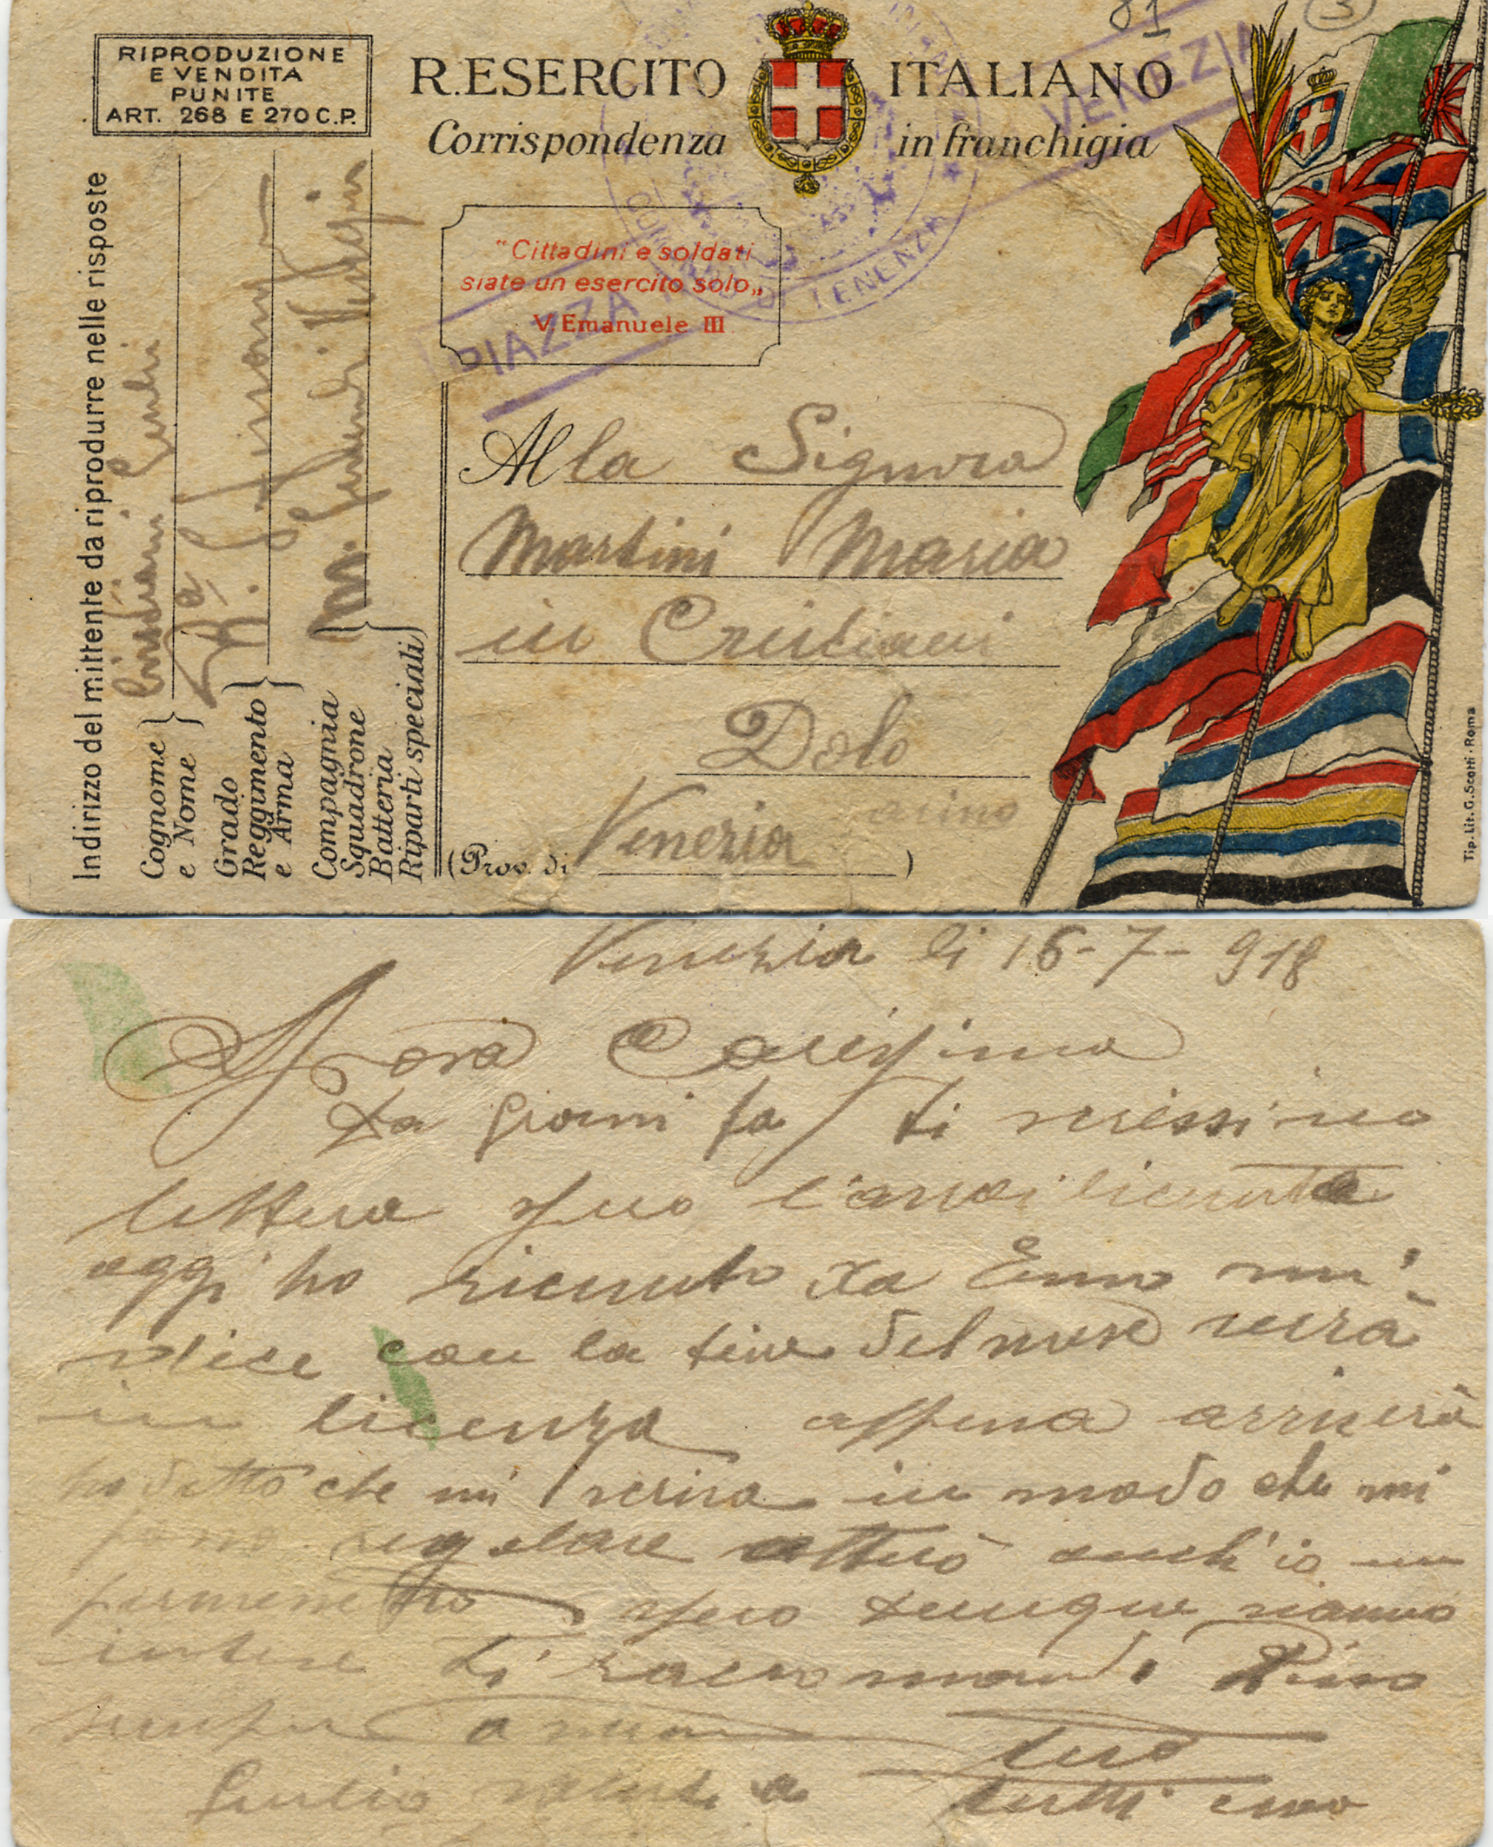 RIPRODUZIONE
E VENDITA
PUNITE
ART. 268 E 270 C.P.
R. ESERCITO ITALIANO
Corrispondenza in franchigia
81
3
PIAZZA VENEZIA
COMANDO DI TENENZA
"Cittadini e soldati
siate un esercito solo„
V. Emanuele III
Alla Signora
Martini Maria
in
Dolo
(Prov. di Venezia)
Indirizzo del mittente da riprodurre nelle risposte
Cognome
e Nome
Grado
Reggimento
e Arma
Compagnia
Squadrone
Batteria
Riparti speciali
Tip. Lit. G. Scotti - Roma
Venezia li 16-7-918
Carissima
Da giorni fa ti scrissi una
lettera spero l'avrai ricevuta
oggi ho ricevuto da mi
dice con la fine del mese verrà
in licenza appena arriverà
ho detto che mi scriva in modo che mi
regolare anch'io un
spero dunque siamo
intesi ti raccomando
sempre tuo
Giulio saluti a tutti